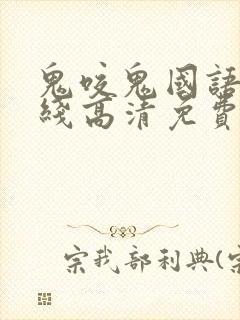 鬼咬鬼國語
綫高清免費
宗我部利典(宗